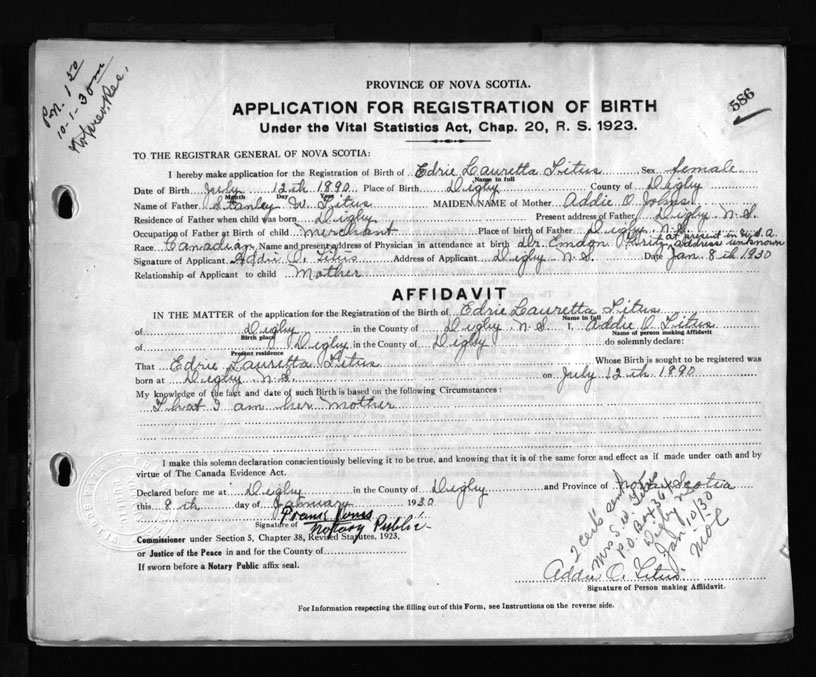 P.N. 1.50
10-1-30
586
PROVINCE OF NOVA SCOTIA.
APPLICATION FOR REGISTRATION OF BIRTH
Under the Vital Statistics Act, Chap. 20, R. S. 1923.
TO THE REGISTRAR GENERAL OF NOVA SCOTIA:
I hereby make application for the Registration of Birth of Edrie Lauretta Titus Sex female
Name in full
Date of Birth July 12th 1890 Place of Birth Digby County of Digby
Month Day Year
Name of Father Stanley W. Titus MAIDEN NAME of Mother Addie O.
Residence of Father when child was born Digby Present address of Father Digby N.S.
Occupation of Father at Birth of child Merchant Place of birth of Father Digby N.S.
is at present in U.S.A.
Race Canadian Name and present address of Physician in attendance at birth Dr. address unknown
Signature of Applicant Addie O. Titus Address of Applicant Digby N.S. Date Jan. 8th 1930
Relationship of Applicant to child Mother
AFFIDAVIT
IN THE MATTER of the application for the Registration of the Birth of Edrie Lauretta Titus
Name in full
of Digby in the County of Digby N.S. I, Addie O. Titus
Birth place Name of person making Affidavit
of Digby in the County of Digby do solemnly declare:
Present residence
That Edrie Lauretta Titus Whose Birth is sought to be registered was
born at Digby N.S. on July 12th 1890
My knowledge of the fact and date of such Birth is based on the following Circumstances:
That I am her Mother
I make this solemn declaration conscientiously believing it to be true, and knowing that it is of the same force and effect as if made under oath and by
virtue of The Canada Evidence Act.
Declared before me at Digby in the County of Digby and Province of Nova Scotia
this 8th day of January 1930
Signature of Frank Jones
Notary Public
Commissioner under Section 5, Chapter 38, Revised Statutes, 1923,
or Justice of the Peace in and for the County of
If sworn before a Notary Public affix seal.
2 Certs sent
Mrs S. W. Titus
P.O. Box 361
Digby N.S.
Jan 10/30
Addie O. Titus
Signature of Person making Affidavit.
For Information respecting the filling out of this Form, see Instructions on the reverse side.